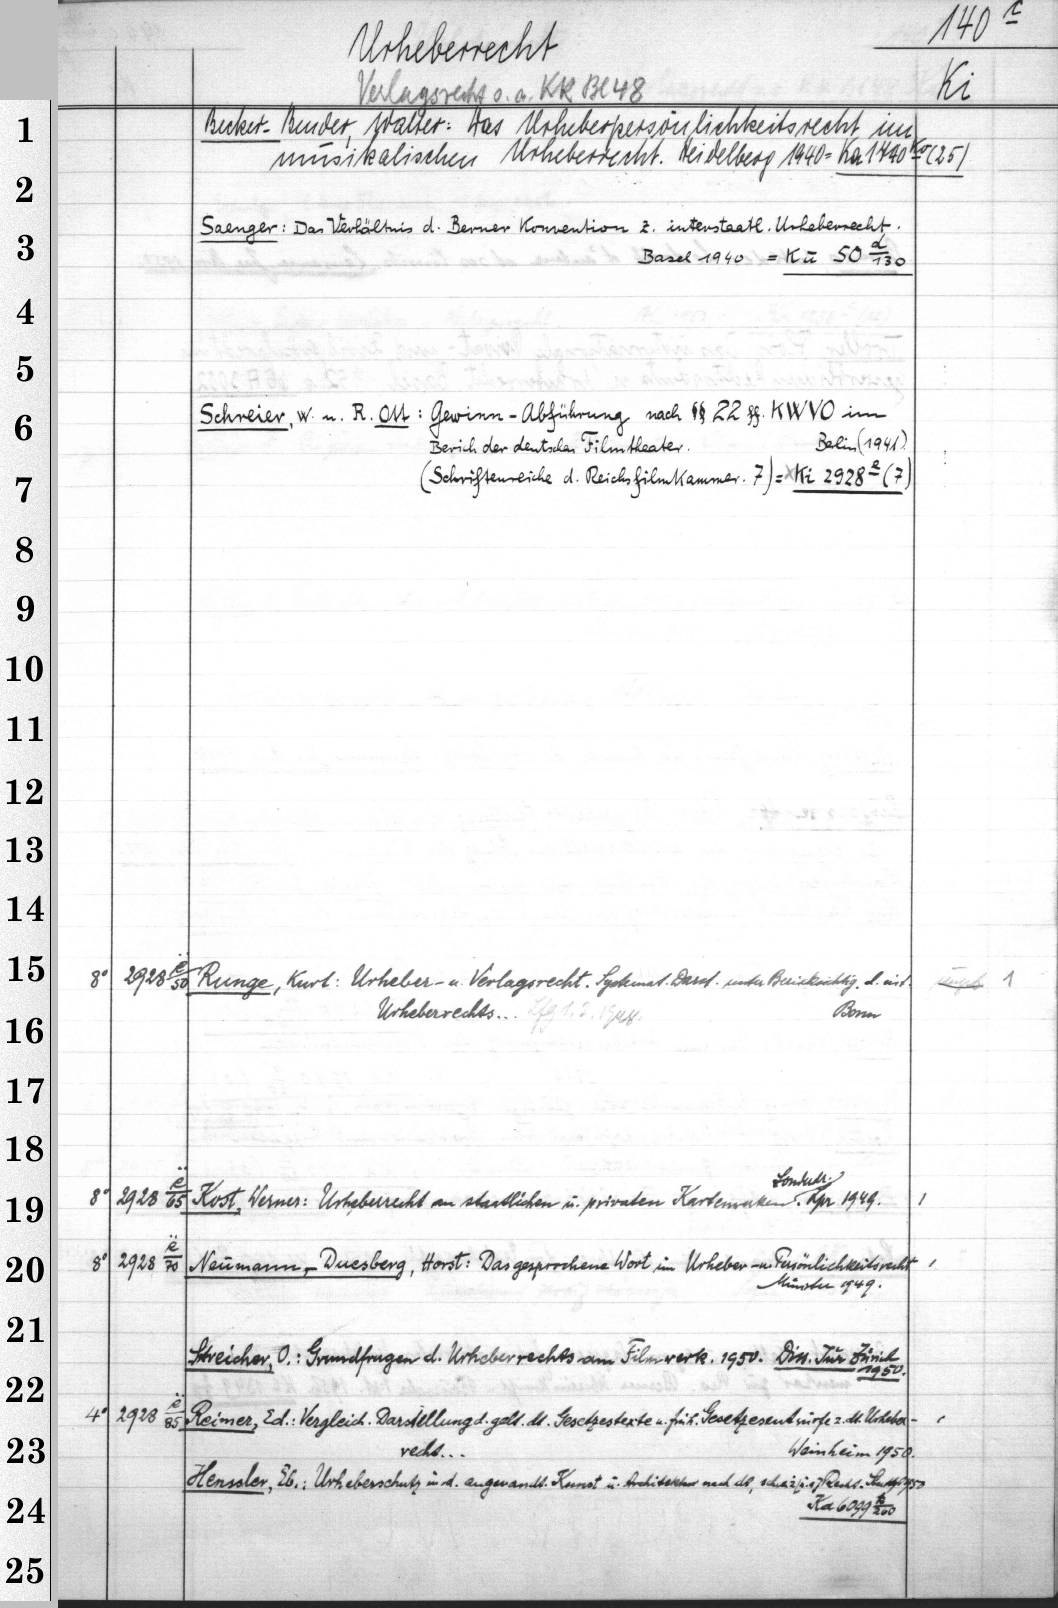 140 c
Urheberrecht
Verlagsrecht s. a. KK Bl 48
Ki
1
Becker-Bender, Walter: Das Urheberpersönlichkeitsrecht im
musikalischen Urheberrecht. Heidelberg 1940 = Ka 1490 (25)
2
Saenger: Das Verhältnis d. Berner Konvention z. interstaatl. Urheberrecht.
3
Basel 1940 = Kü 50 d/130
4
5
Schreier, W. u. R. Ott: Gewinn-Abführung nach §§ 22 ff. KWVO im
6
Berich der deutschen Filmtheater. Berlin (1941).
7
(Schriftenreihe d. Reichsfilmkammer. 7) = Ki 2928 e (7)
8
9
10
11
12
13
14
15
8° 2928 ë/50 Runge, Kurt: Urheber- u. Verlagsrecht. Systemat. Darst. unter Berücksichtig. d. int. 1
Urheberrechts... Lfg 1. 2. Bonn
16
17
18
Sonderdr.
19
8° 2928 ë/65 Kost, Werner: Urheberrecht an staatlichen u. privaten Kartenwerken. Lpz 1949.
20
8° 2928 ë/70 Neumann-Duesberg, Horst: Das gesprochene Wort im Urheber- u. Persönlichkeitsrecht
Münster 1949.
21
Streicher, O.: Grundfragen d. Urheberrechts am Filmwerk. 1950. Diss. Jur Zürich
1950.
22
4° 2928 ë/85 Reimer, Ed.: Vergleich. Darstellung d. gelt. dt. Gesetzestexte u. früh. Gesetzesentwürfe z. dt. Urheber-
23
recht... Weinheim 1950.
Henssler, Eb.: Urheberschutz in d. angewandt. Kunst u. Architektur nach dt., Recht. Stuttgt 1950
24
Ka 6099
25